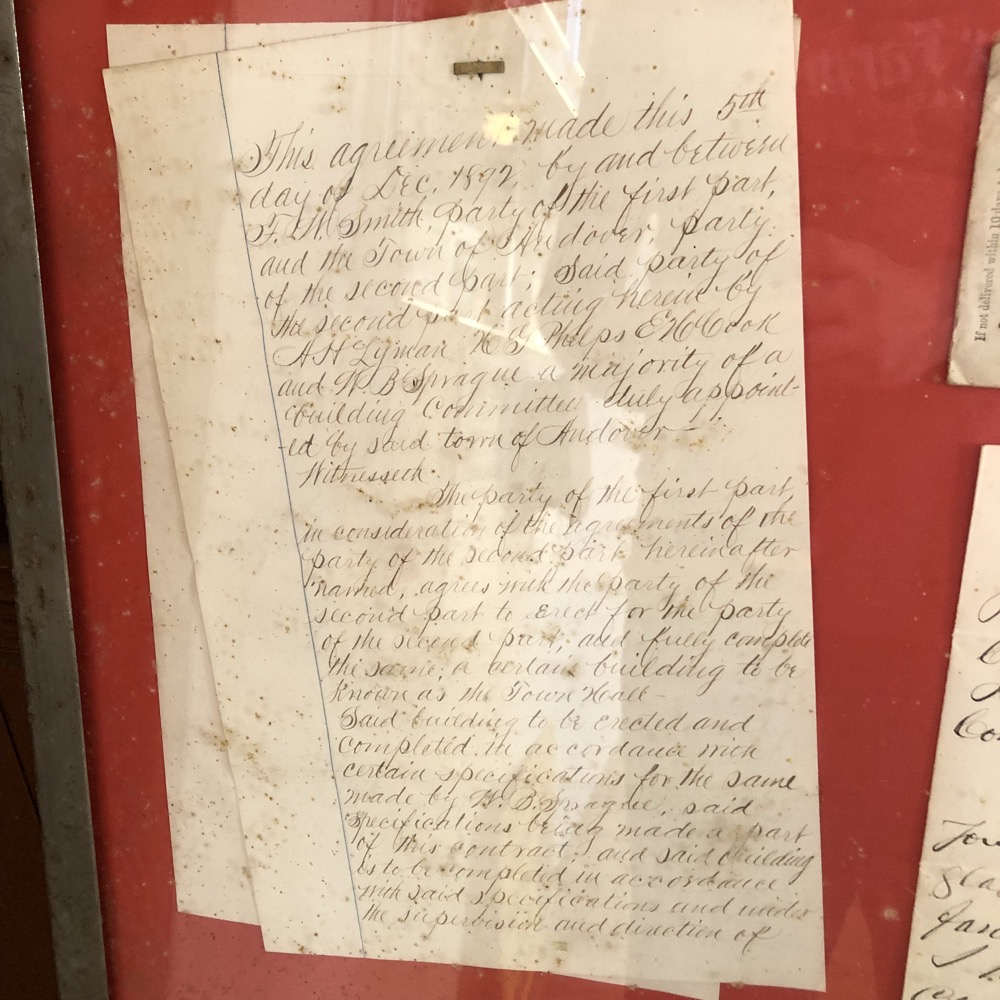 This agreement made this 5th
day of Dec. 1892, by and between
F. M. Smith, party of the first part,
and the Town of Andover, party
of the second part; Said party of
the second part acting herein by
A H Lyman H G Phelps E H Cook
and W. B Sprague a majority of a
building Committee duly appoint-
ed by said town of Andover -
Witnesseth.
The party of the first part,
in consideration of the agreements of the
party of the second part hereinafter
named, agrees with the party of the
second part to Erect for the party
of the second part, and fully complete
the same, a certain building to be
known as the Town Hall -
Said building to be erected and
completed in accordance with
certain specifications for the same
made by W. B. Sprague, said
specifications being made a part
of this contract; and said building
is to be completed in accordance
with said specifications and under
the supervision and direction of
If not delivered within 10